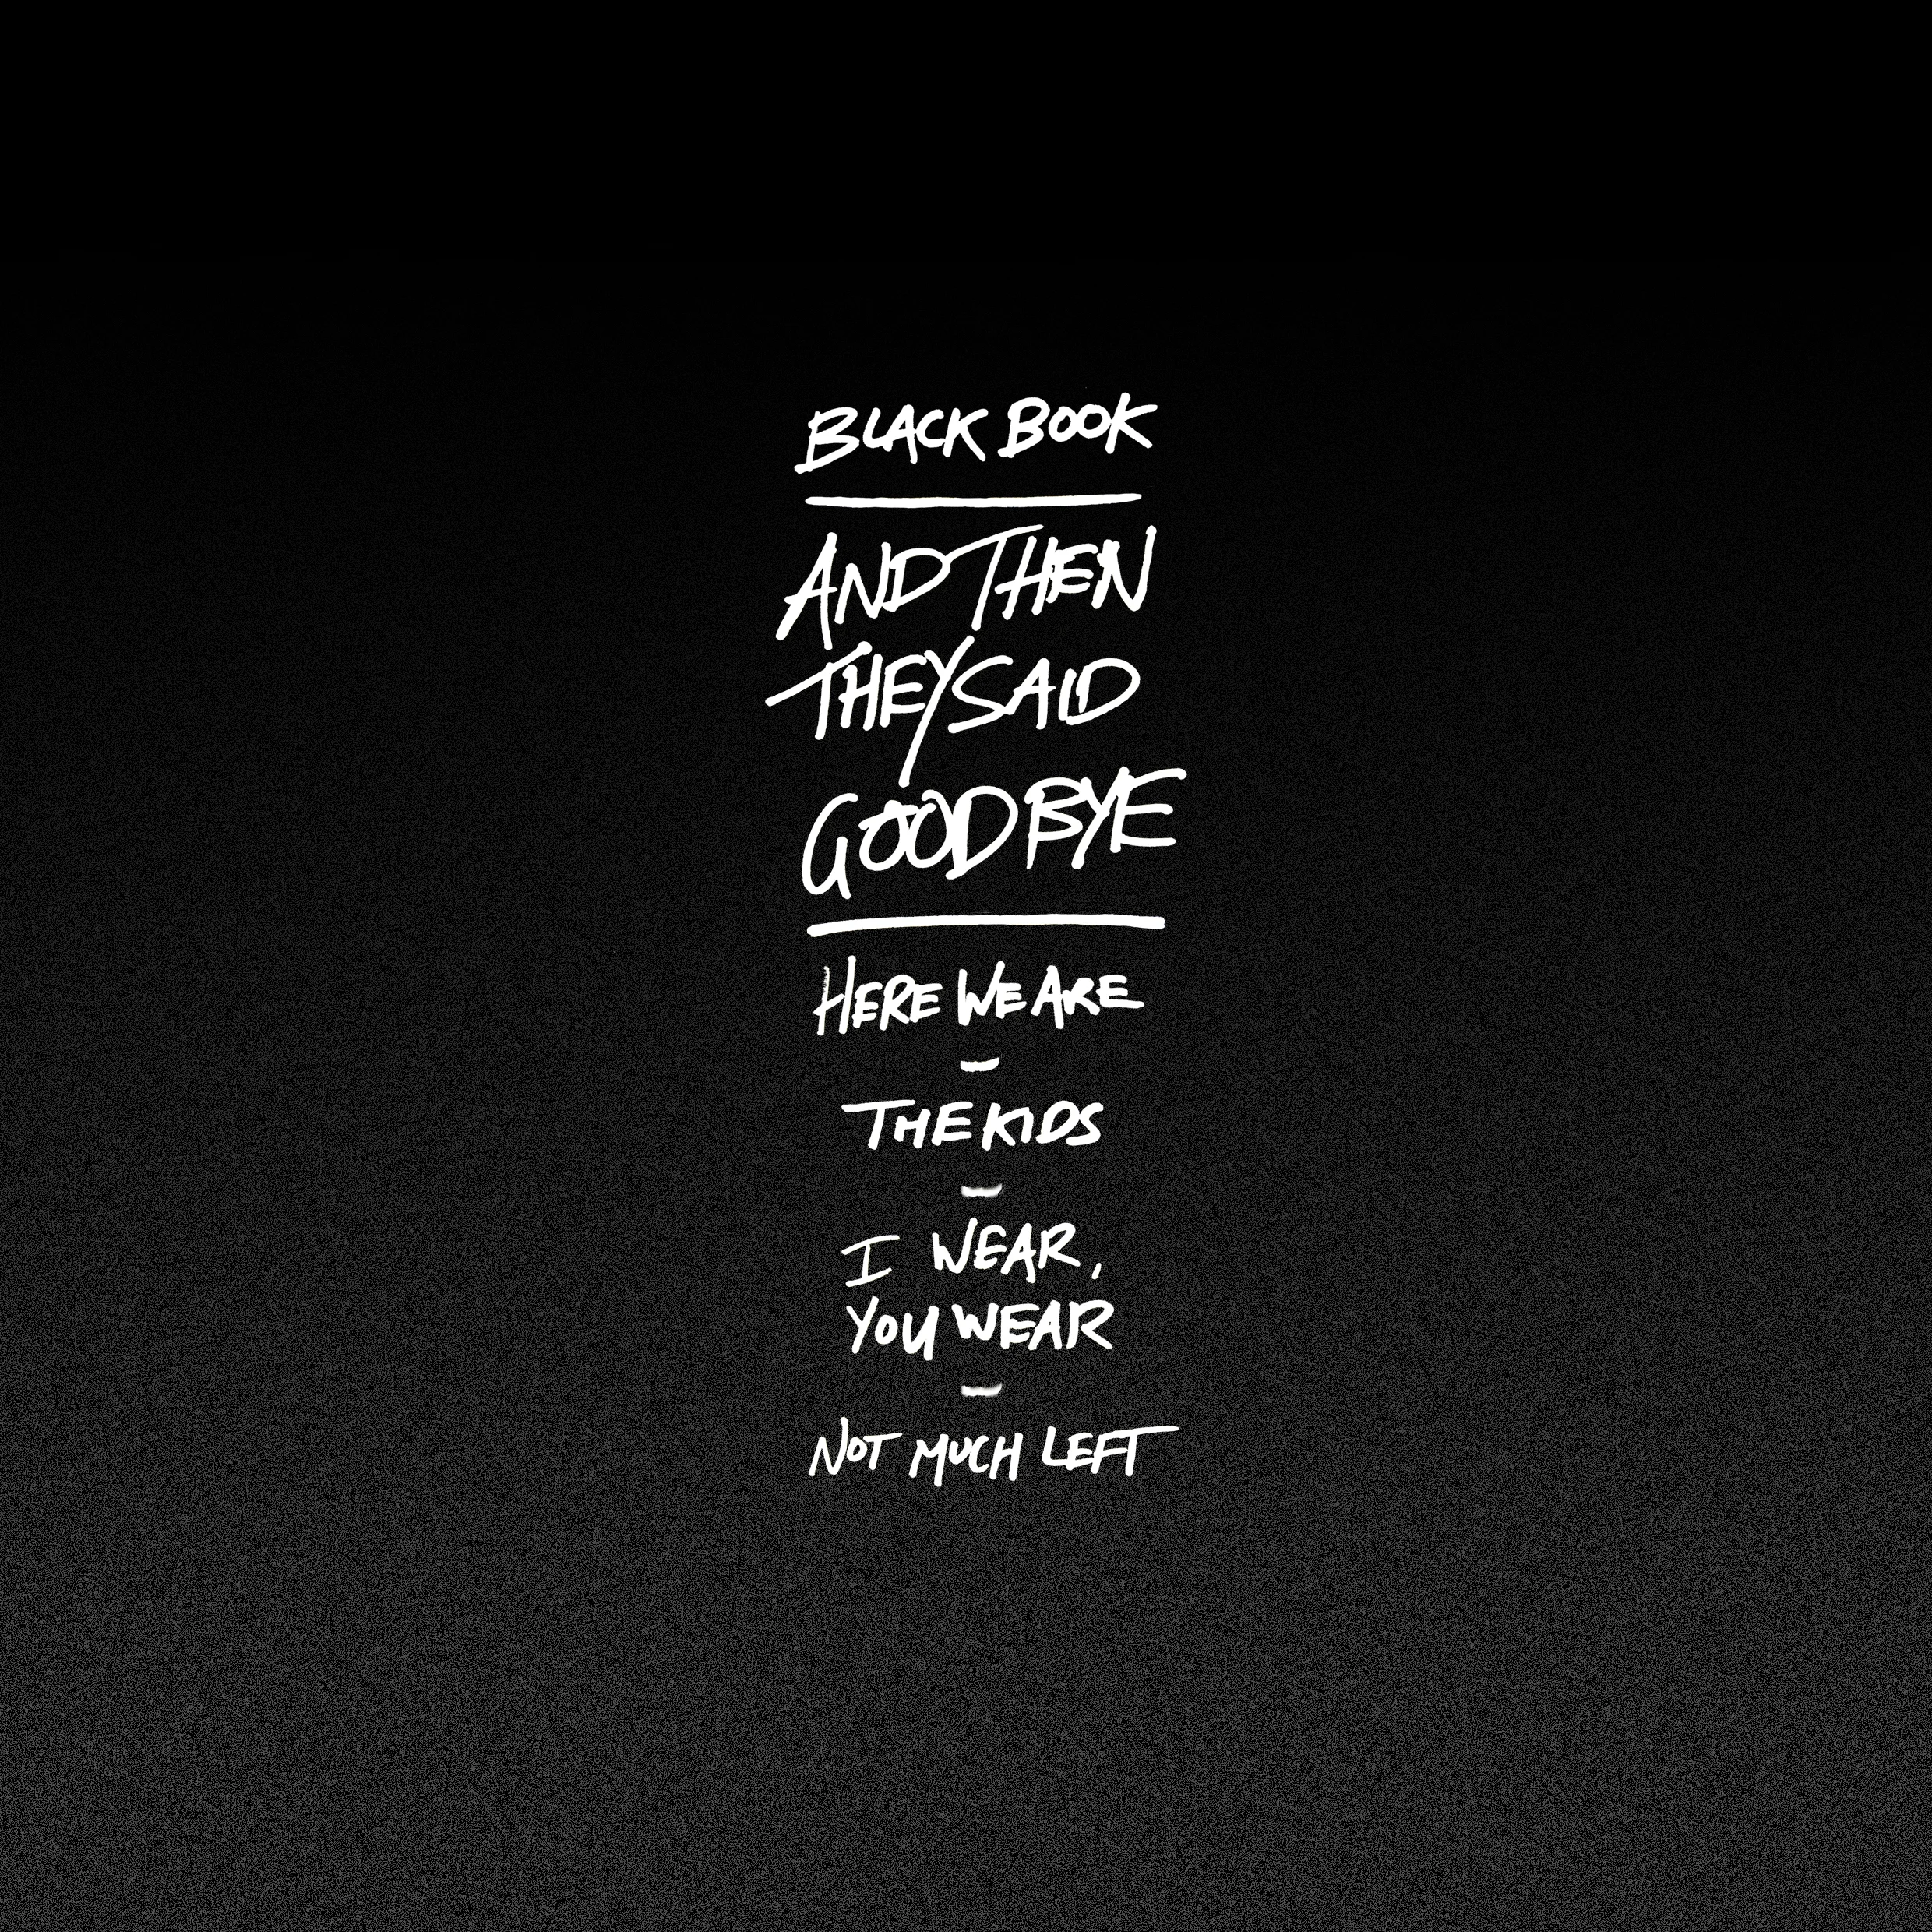 BLACK BOOK
AND THEN
THEY SAID
GOOD BYE
HERE WE ARE
-
THE KIDS
-
I WEAR,
YOU WEAR
-
NOT MUCH LEFT